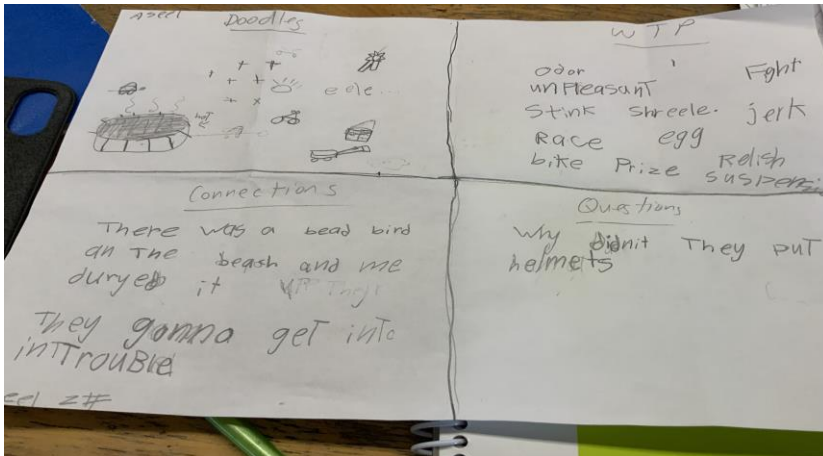 Aseel
Doodles
eele...
WTP
odor Fght
unPleasant
Stink Shreele. jerk
Race egg
bike Prize Relish
suspens
Connections
There was a bead bird
an The beash and me
duryed it
They gonna get into
inTTrouBle
eel z#
Questions
Why didnit They puT
helmets